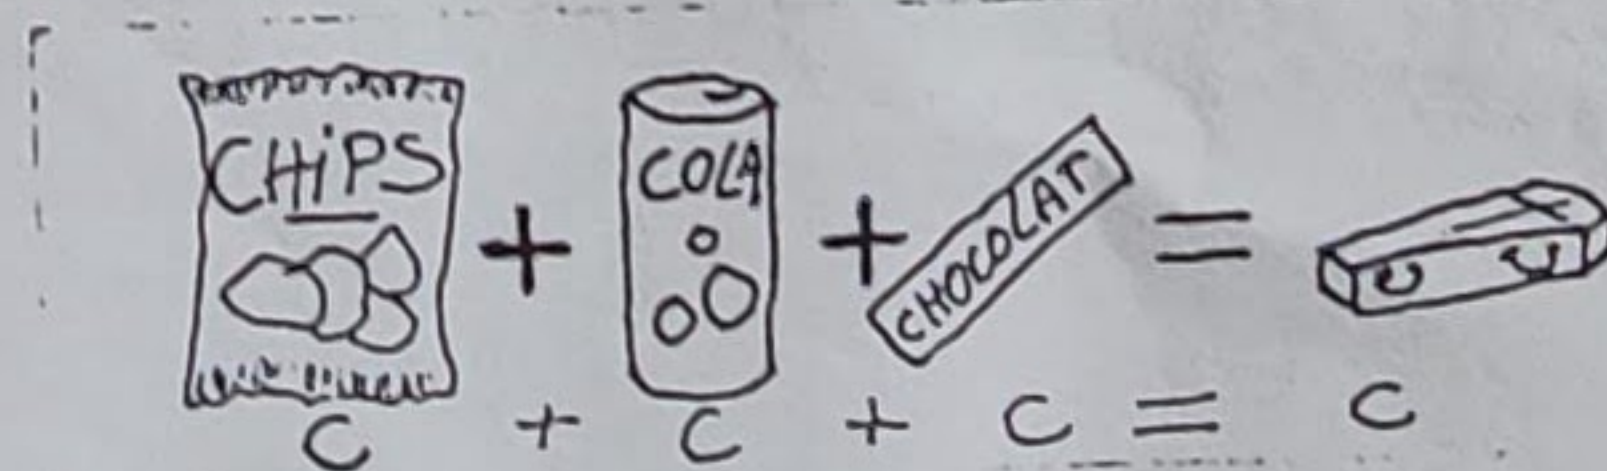 CHiPS + COLA + CHOCOLAT =
C + C + C = C